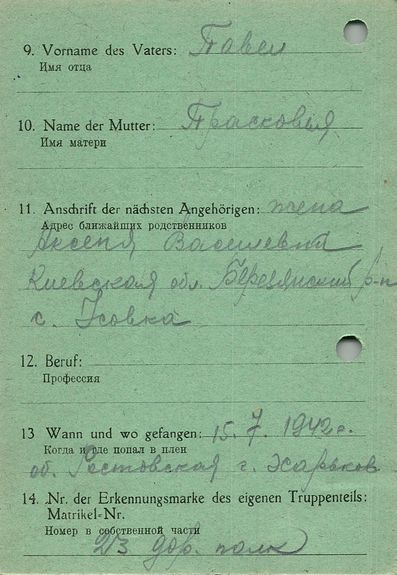 9. Vorname des Vaters: Павел
Имя отца
10. Name der Mutter: Прасковья
Имя матери
11. Anschrift der nächsten Angehörigen: жена
Адрес ближайших родственников
Аксеня Василевна
Киевская обл. Березянский р-н
с. Усовка
12. Beruf:
Профессия
13 Wann und wo gefangen: 15.7.1942г.
Когда и где попал в плен
об. Ростовская г. Харьков
14. Nr. der Erkennungsmarke des eigenen Truppenteils:
Matrikel-Nr.
Номер в собственной части
213 полк